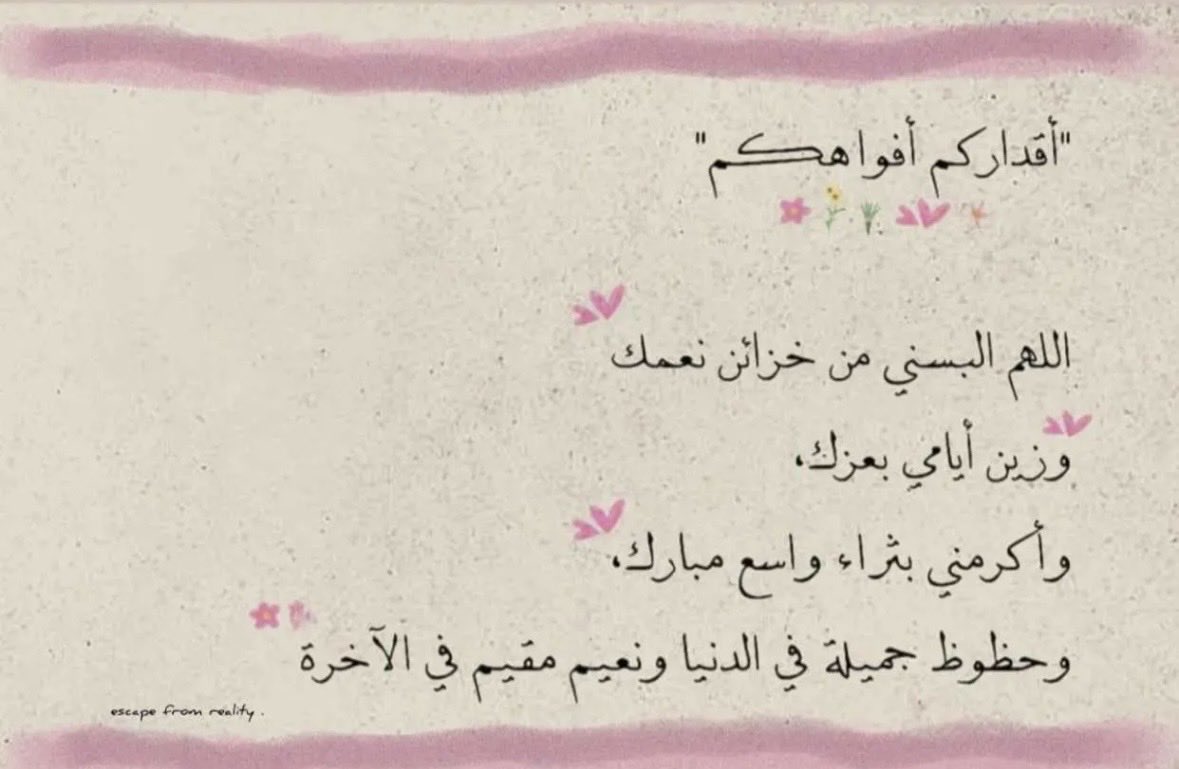 "أقداركم أفواهكم"
اللهم البسني من خزائن نعمك
وزين أيامي بعزك،
وأكرمني بثراء واسع مبارك،
وحظوظ جميلة في الدنيا ونعيم مقيم في الآخرة
escape from reality .